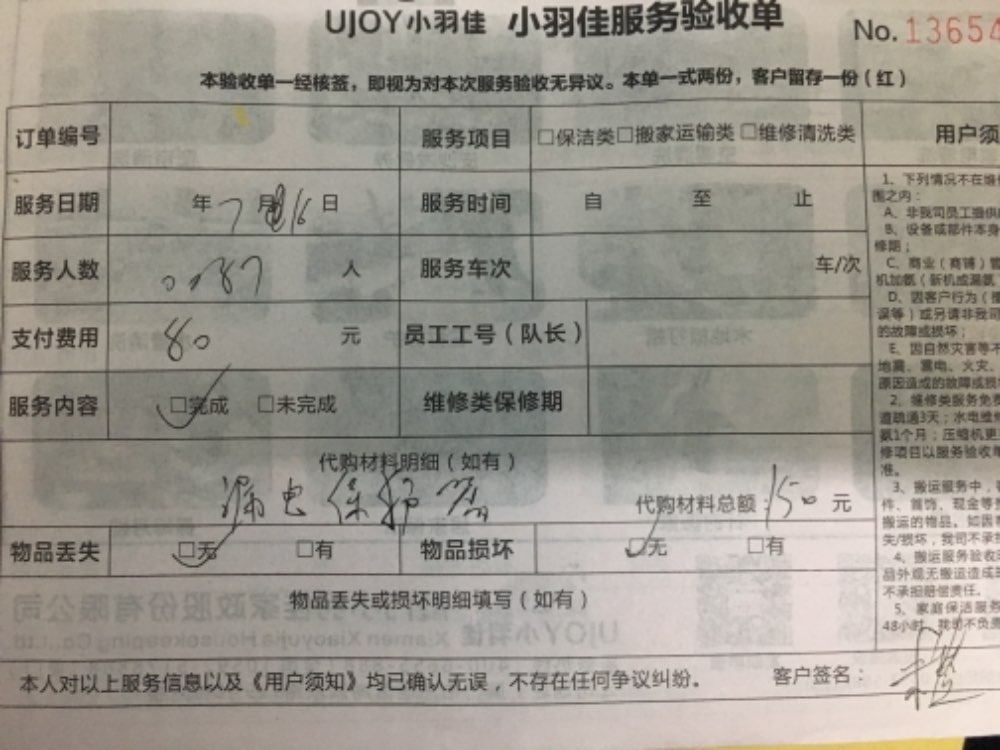 UJOY小羽佳 小羽佳服务验收单 No. 13654
本验收单一经核签，即视为对本次服务验收无异议。本单一式两份，客户留存一份（红）
订单编号 服务项目 □保洁类□搬家运输类□维修清洗类 用户须
服务日期 年7月16日 服务时间 自 至 止
服务人数 0087 人 服务车次 车/次
支付费用 80 元 员工工号（队长）
服务内容 □完成 □未完成 维修类保修期
代购材料明细（如有）
漏电保护器 代购材料总额：150元
物品丢失 □无 □有 物品损坏 □无 □有
物品丢失或损坏明细填写（如有）
本人对以上服务信息以及《用户须知》均已确认无误，不存在任何争议纠纷。 客户签名：
1、下列情况不在维修
围之内：
A、非我司员工提供
B、设备或部件本身
修期；
C、商业（商铺）
机加氨（新机或漏氨
D、因客户行为（
误等）或另请非我司
的故障或损坏；
E、因自然灾害等不
地震、雷电、火灾、
原因造成的故障或损
2、维修类服务免费
道疏通3天；水电维
氨1个月；压缩机更
修项目以服务验收单
准。
3、搬运服务中，
件、首饰、现金等
搬运的物品。如因
失/损坏，我司不承担
4、搬运服务验收
品外观无搬运造成
不承担赔偿责任。
5、家庭保洁服务
48小时，我司不负责